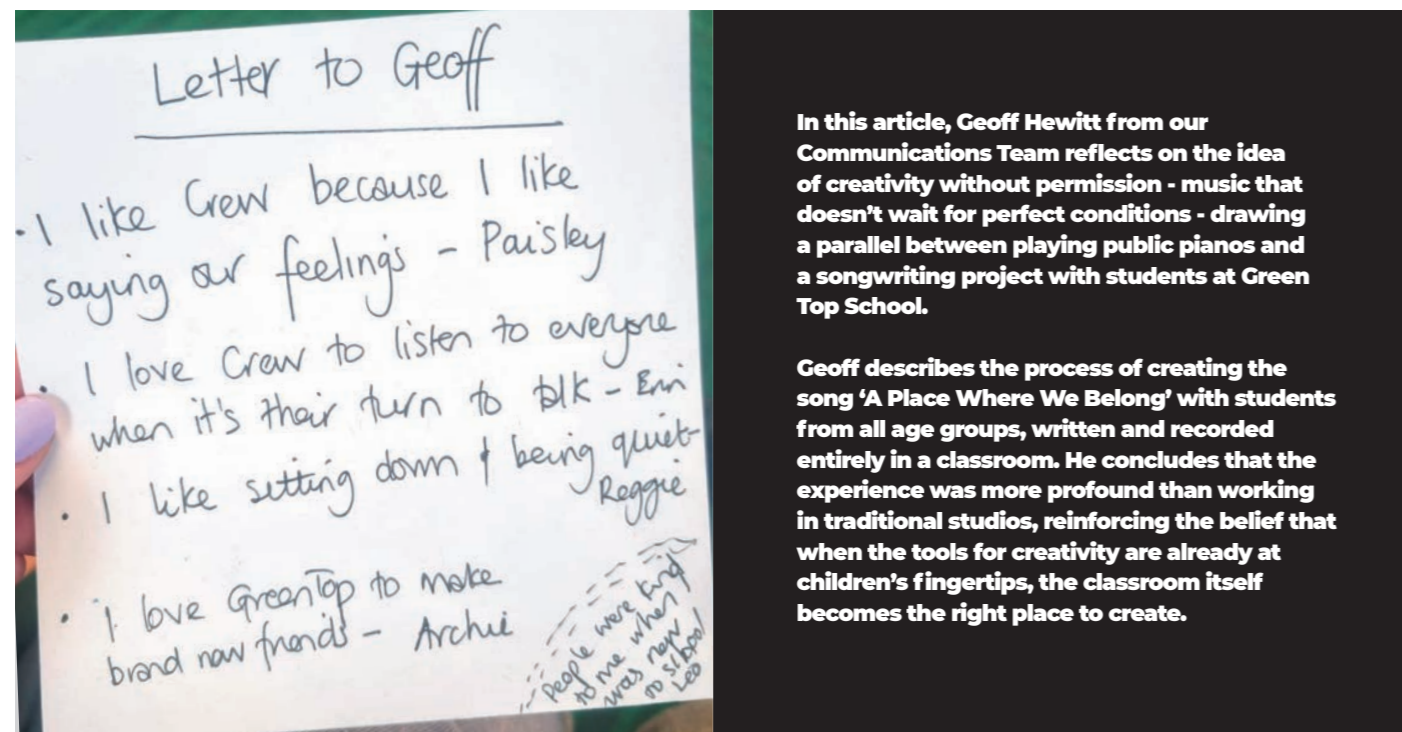 Letter to Geoff
· I like Crew because I like
saying our feelings - Paisley
· I love Crew to listen to everyone
when it's their turn to talk - Erin
· I like sitting down & being quiet-
Reggie
· I love GreenTop to make
brand new friends - Archie
People were kind
to me when I
was new
to school
Leo
In this article, Geoff Hewitt from our
Communications Team reflects on the idea
of creativity without permission - music that
doesn’t wait for perfect conditions - drawing
a parallel between playing public pianos and
a songwriting project with students at Green
Top School.
Geoff describes the process of creating the
song ‘A Place Where We Belong’ with students
from all age groups, written and recorded
entirely in a classroom. He concludes that the
experience was more profound than working
in traditional studios, reinforcing the belief that
when the tools for creativity are already at
children’s fingertips, the classroom itself
becomes the right place to create.